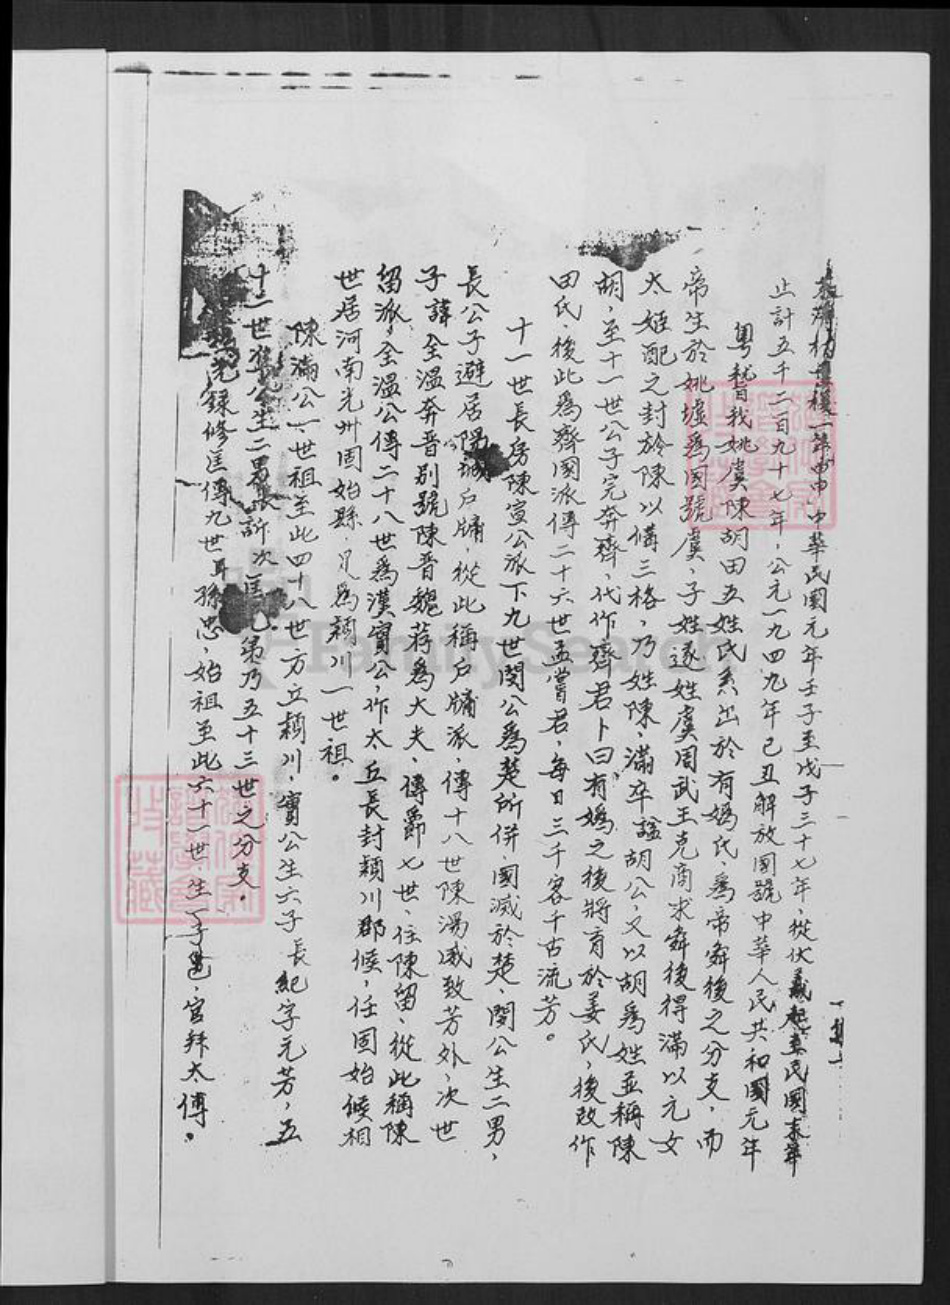 中華民國元年壬子至戊子三十七年、從伏羲起至民國末華
止計五千二百九十七年，公元一九四九年己丑解放國號中華人民共和國元年
粵稽我姚虞陳胡田五姓氏系出於有媯氏、為帝舜後之分支，而
帝生於姚墟為國號虞，子姓遂姓虞周武王克商求舜後得滿以元女
太姬配之封於陳以備三格，乃姓陳，滿卒諡胡公，又以胡為姓並稱陳
胡，至十一世公子完奔齊、代作齊君卜曰有媯之後將育於姜氏，後改作
田氏、後此為齊國派傳二十六世孟嘗君，每日三千客千古流芳。
十一世長房陳宣公派下九世閔公為楚所併、國滅於楚、閔公生二男，
長公子避居陽城戶牖、從此稱戶牖派，傳十八世陳湯威致芳外、次世
子諱全溫奔晉別號陳晉魏荐為大夫、傳爵七世、住陳留、從此稱陳
留派，全溫公傳二十八世為漢寔公，作太丘長封潁川郡候，任固始候相
世居河南光州固始縣 凡為潁川一世祖。
陳滿公一世祖至此四十八世方立潁川，寔公生六子長紀字元芳，五
十二世準公生二男長訢次匡 兄弟乃五十三世之分支。
錄修匡傳九世耳孫忠，始祖至此六十一世、生一子邕，官拜太傅。
FamilySearch